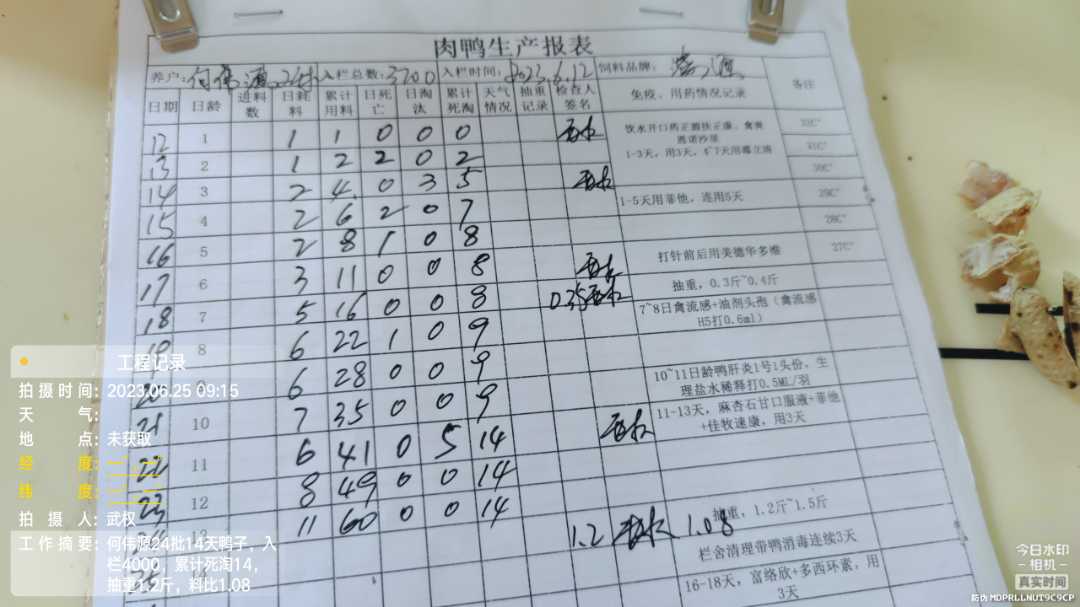 肉鸭生产报表
养户:何伟源24批 入栏总数:3700 入栏时间:2023.6.12 饲料品牌:
日期 日龄 进料数 日耗料 累计用料 日死亡 日淘汰 累计死淘 天气情况 抽重记录 检查人签名 免疫、用药情况记录 备注
12 1 1 1 0 0 0 饮水开口药 33C°
13 2 1 2 2 0 2 1-3天,用3天,4~7天用 31C°
14 3 2 4 0 3 5 30C°
15 4 2 6 2 0 7 1-5天用菲他,连用5天 29C°
16 5 2 8 1 0 8 28C°
17 6 3 11 0 0 8 打针前后用美德华多维 27C°
18 7 5 16 0 0 8 0.35 抽重,0.3斤~0.4斤
19 8 6 22 1 0 9 7~8日禽流感+油剂头孢(禽流感H5打0.6ml)
20 6 28 0 0 9
21 10 7 35 0 0 9 10~11日龄鸭肝炎1号1头份,生理盐水稀释打0.5ML/羽
22 11 6 41 0 5 14 11-13天,麻杏石甘口服液+菲他+佳牧速康,用3天
23 12 8 49 0 0 14
11 60 0 0 14 1.2 1.08 抽重,1.2斤~1.5斤
栏舍清理带鸭消毒连续3天
16-18天,富络欣+多西环素,用3天
工程记录
拍摄时间:2023.06.25 09:15
天气:
地点:未获取
经度:
纬度:
拍摄人:武权
工作摘要:何伟源24批14天鸭子,入
栏4000,累计死淘14,
抽重1.2斤,料比1.08
今日水印
-相机-
真实时间
防伪 MDPRLLNUT9C9CP